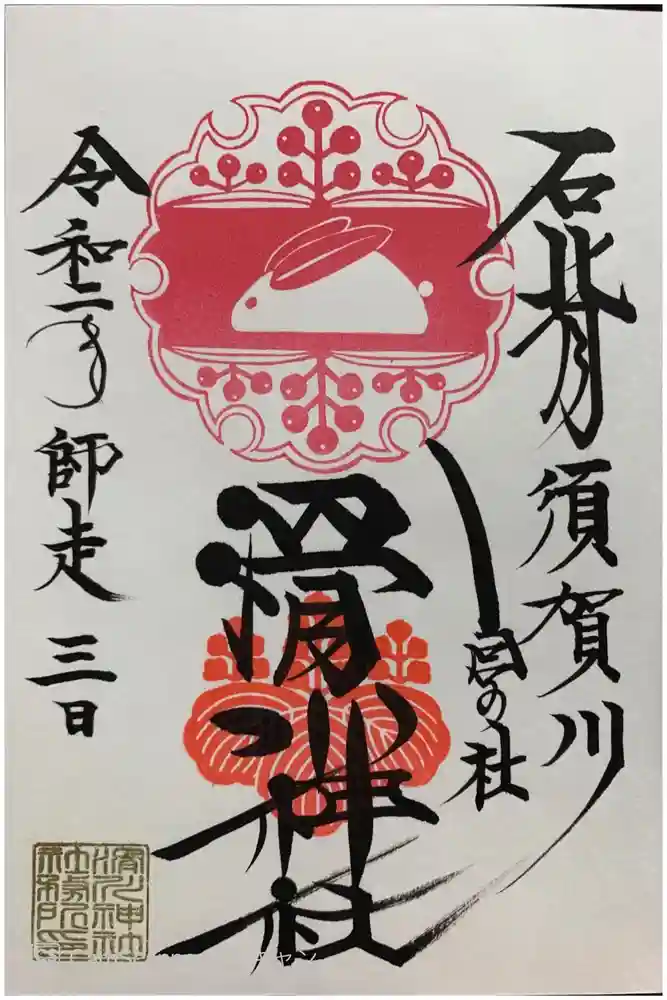 石背須賀川
の社
滑川神社
令和二年師走三日
滑川神社
社務所印